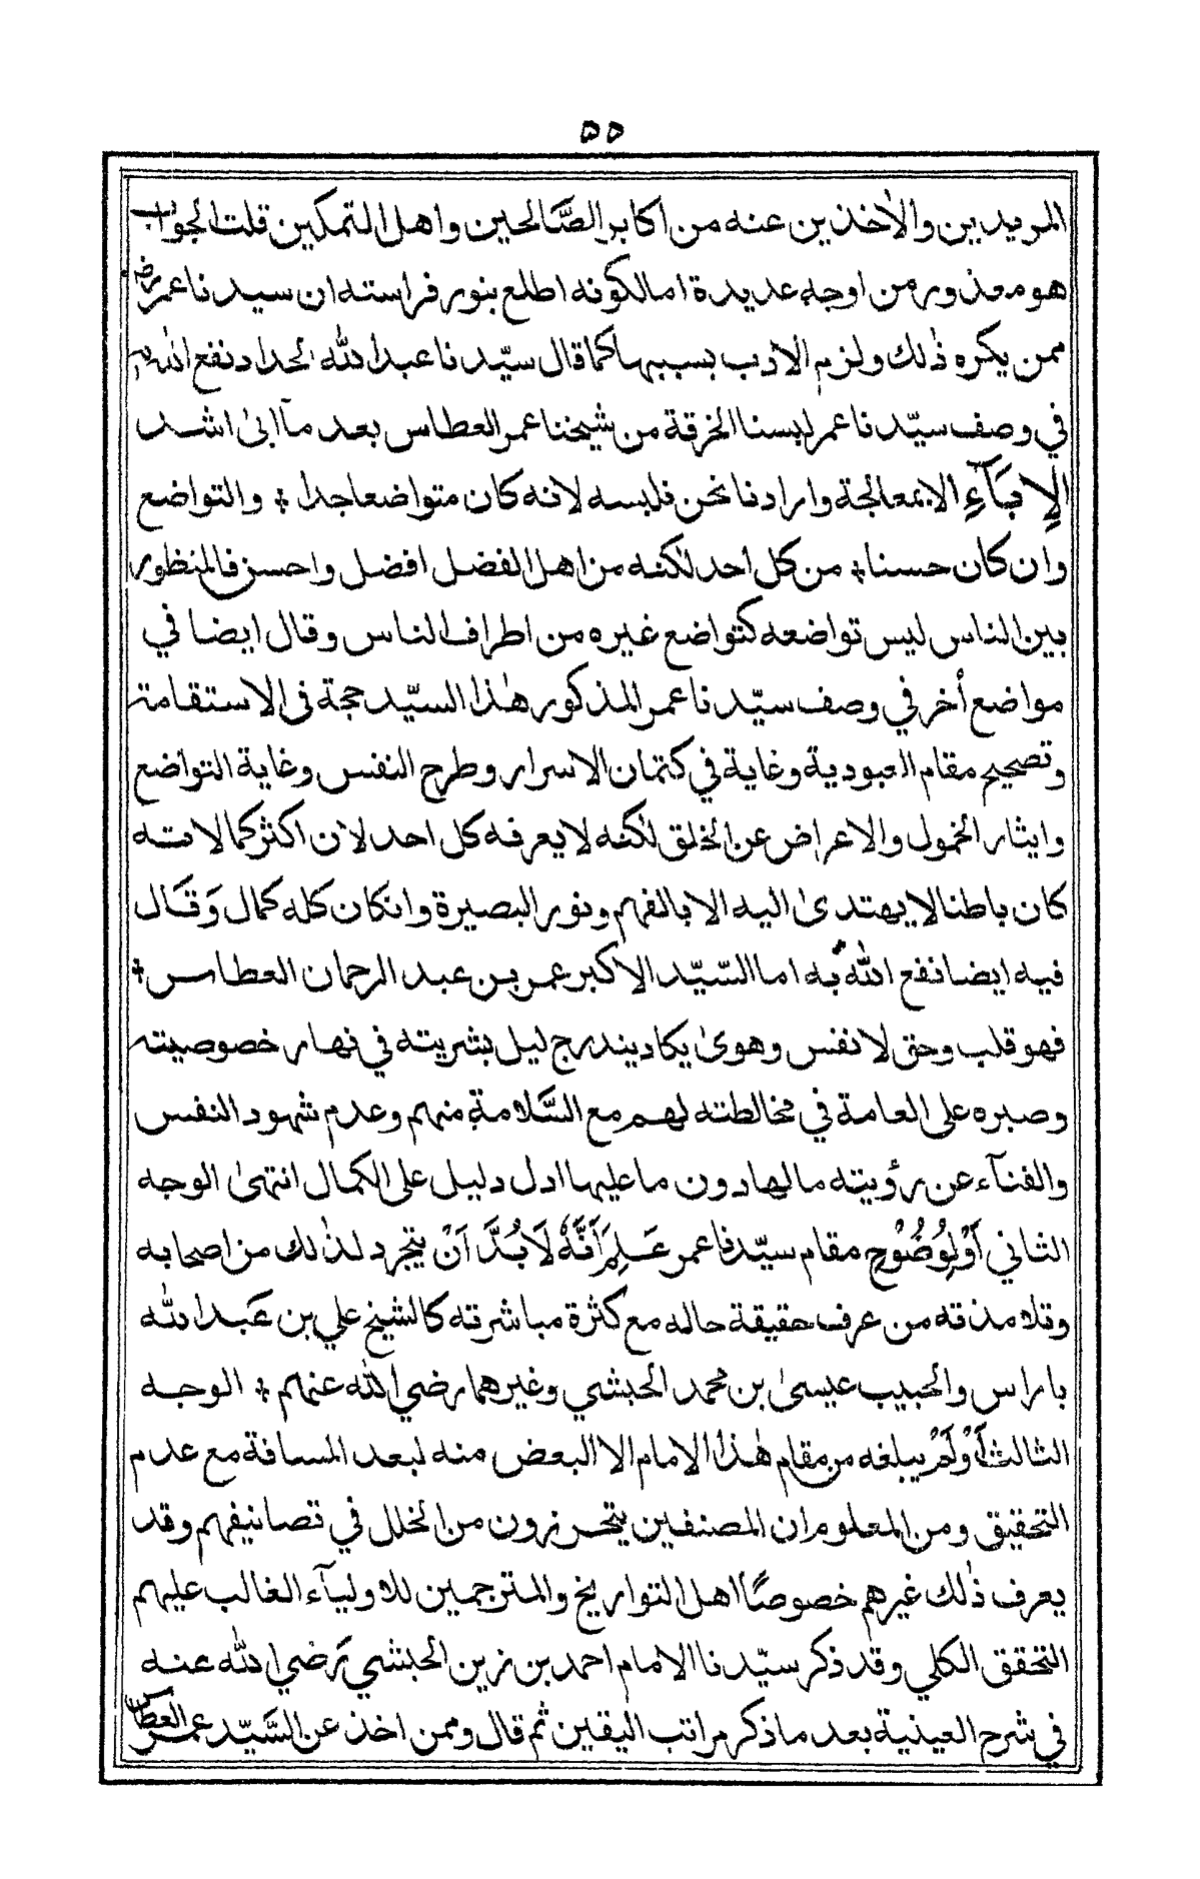 ٥٥
المريدين والاٰخذين عنه من اكابر الصَّالحين واهل التمكين قلت الجواب
هو معذور من اوجه عديدة اما لكونه اطلع بنور فراسته ان سيدنا عمر رض
ممن يكره ذٰلك ولزم الادب بسببها كما قال سيّدنا عبد الله الحداد نفع الله به
في وصف سيّدنا عمر لبسنا الخرقة من شيخنا عمر العطاس بعد مآ ابىٰ اشد
الإِبَآءِ الا بمعالجة وارادنا نحن نلبسه لانه كان متواضعا جدا ٭ والتواضع
وان كان حسنا ٭ من كل احد لٰكنه من اهل الفضل افضل واحسن فالمنظور
بين الناس ليس تواضعه كتواضع غيره من اطراف الناس وقال ايضا في
مواضع أخر في وصف سيّدنا عمر المذكور هٰذا السيّد حجة فى الاستقامة
وتصحيح مقام العبودية وغاية في كتمان الاسرار وطرح النفس وغاية التواضع
وايثار الخمول والاعراض عن الخلق لٰكنه لا يعرفه كل احد لان اكثر كمالاته
كان باطنا لا يهتدىٰ اليه الا بالفهم ونور البصيرة وانكان كله كمال وَقَال
فيه ايضا نفع الله به اما السّيّد الاكبر عمر بن عبد الرحمان العطاس ٭
فهو قلب وحق لا نفس وهوىٰ يكاد يندرج ليل بشريته في نهار خصوصيته
وصبره على العامة في مخالطته لهم مع السَّلامة منهم وعدم شهود النفس
والفنآء عن رؤيته ما لها دون ما عليها ادل دليل على الكمال انتهىٰ الوجه
الثاني أَوْلِوُضُوْحِ مقام سيّدنا عمر عَلِمَ أَنَّهٗ لَابُدَّ اَنْ يتجرد لذٰلك من اصحابه
وتلامذته من عرف حقيقة حاله مع كثرة مباشرته كالشيخ علي بن عَبد الله
باراس والحبيب عيسىٰ بن محمد الحبشي وغيرهما رضي الله عنهم ٭ الوجه
الثالث أَوْلَمْ يبلغه من مقام هٰذا الامام الا البعض منه لبعد المسافة مع عدم
التحقيق ومن المعلوم ان المصنفين يتحرزون من الخلل في تصانيفهم وقد
يعرف ذٰلك غيرهم خصوصًا اهل التواريخ والمترجمين للاوليآء الغالب عليهم
التحقق الكلي وقد ذكر سيّدنا الامام احمد بن زين الحبشي رَضي الله عنه
في شرح العينية بعد ما ذكر مراتب اليقين ثم قال وممن اخذ عن السَّيّد عمر العطاس